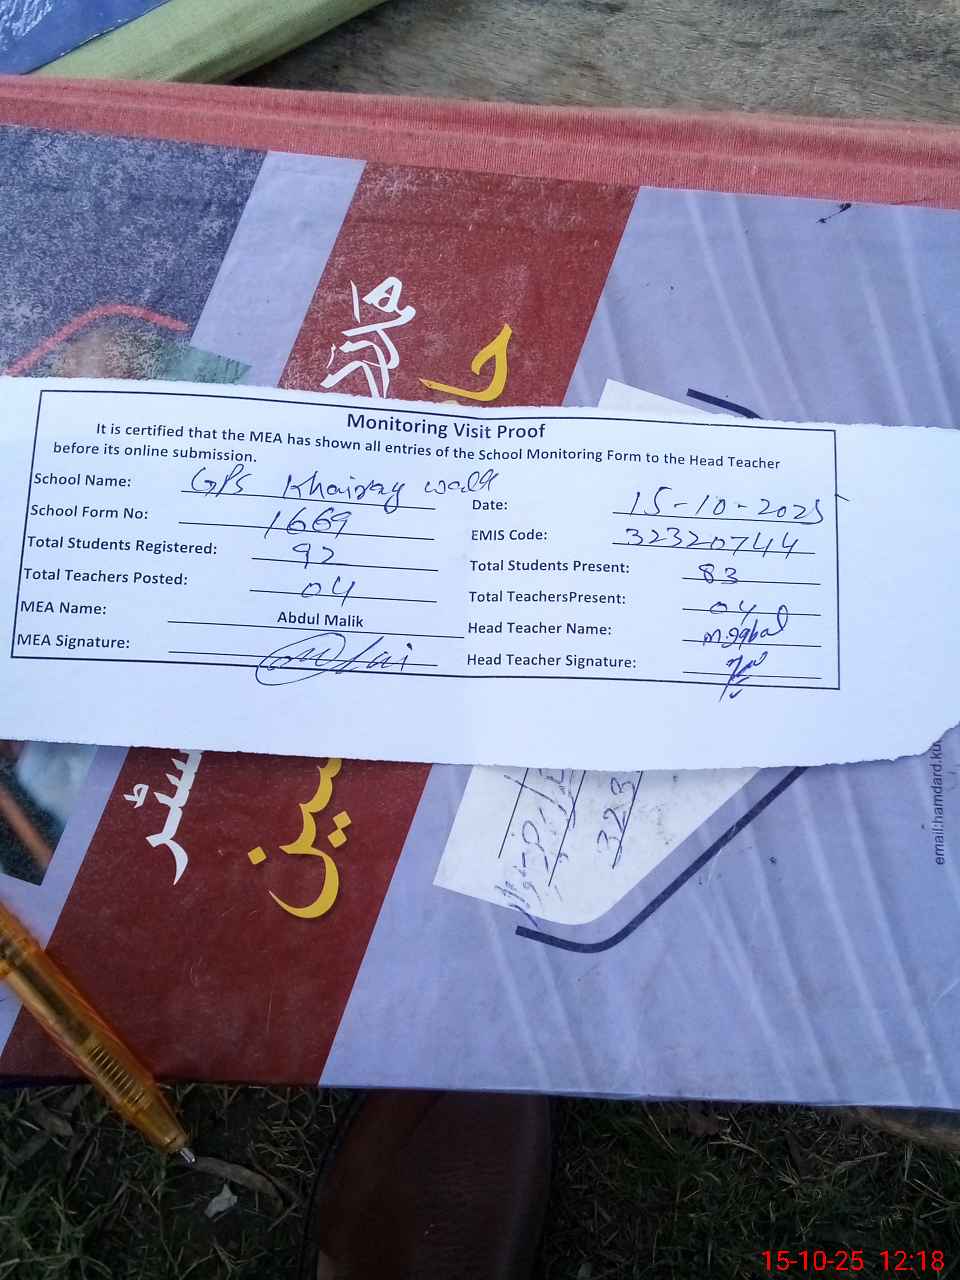 حاضری
رجسٹر
مدرسین
Monitoring Visit Proof
It is certified that the MEA has shown all entries of the School Monitoring Form to the Head Teacher
before its online submission.
School Name: GPS Khairay wala
Date: 15-10-2025
School Form No: 1669
EMIS Code: 32320744
Total Students Registered: 92
Total Students Present: 83
Total Teachers Posted: 04
Total TeachersPresent: 04
MEA Name: Abdul Malik
Head Teacher Name: M. Iqbal
MEA Signature:
Head Teacher Signature:
323
email:hamdard.ku
15-10-25 12:18